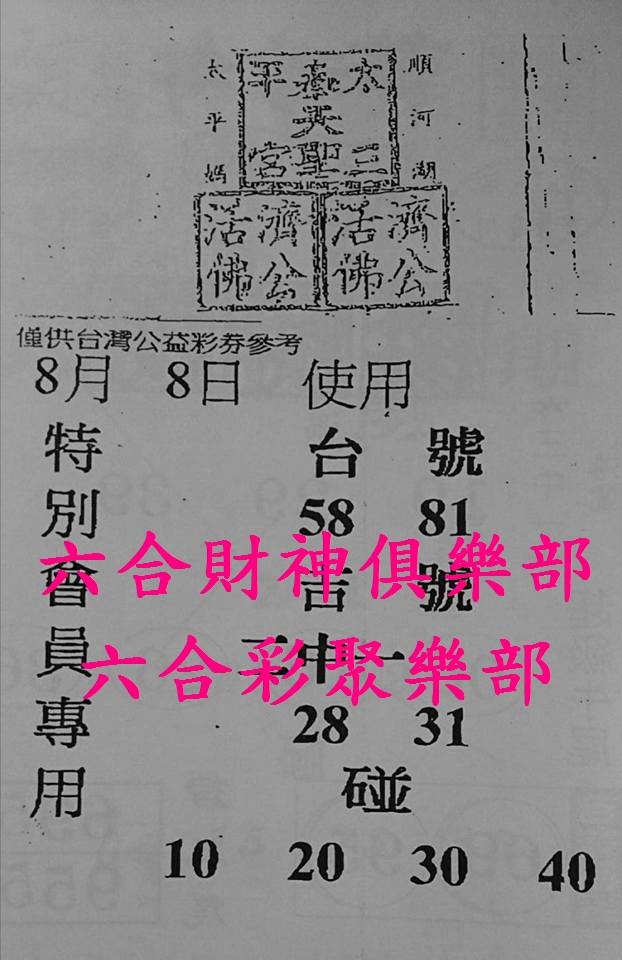 順河湖
太平媽
太叁平
天
三聖宮
濟公活佛
濟公活佛
僅供台灣公益彩券參考
8月 8日 使用
特別會員專用
台 號
58 81
六合財神俱樂部
吉 號
二中一
六合彩聚樂部
28 31
碰
10 20 30 40